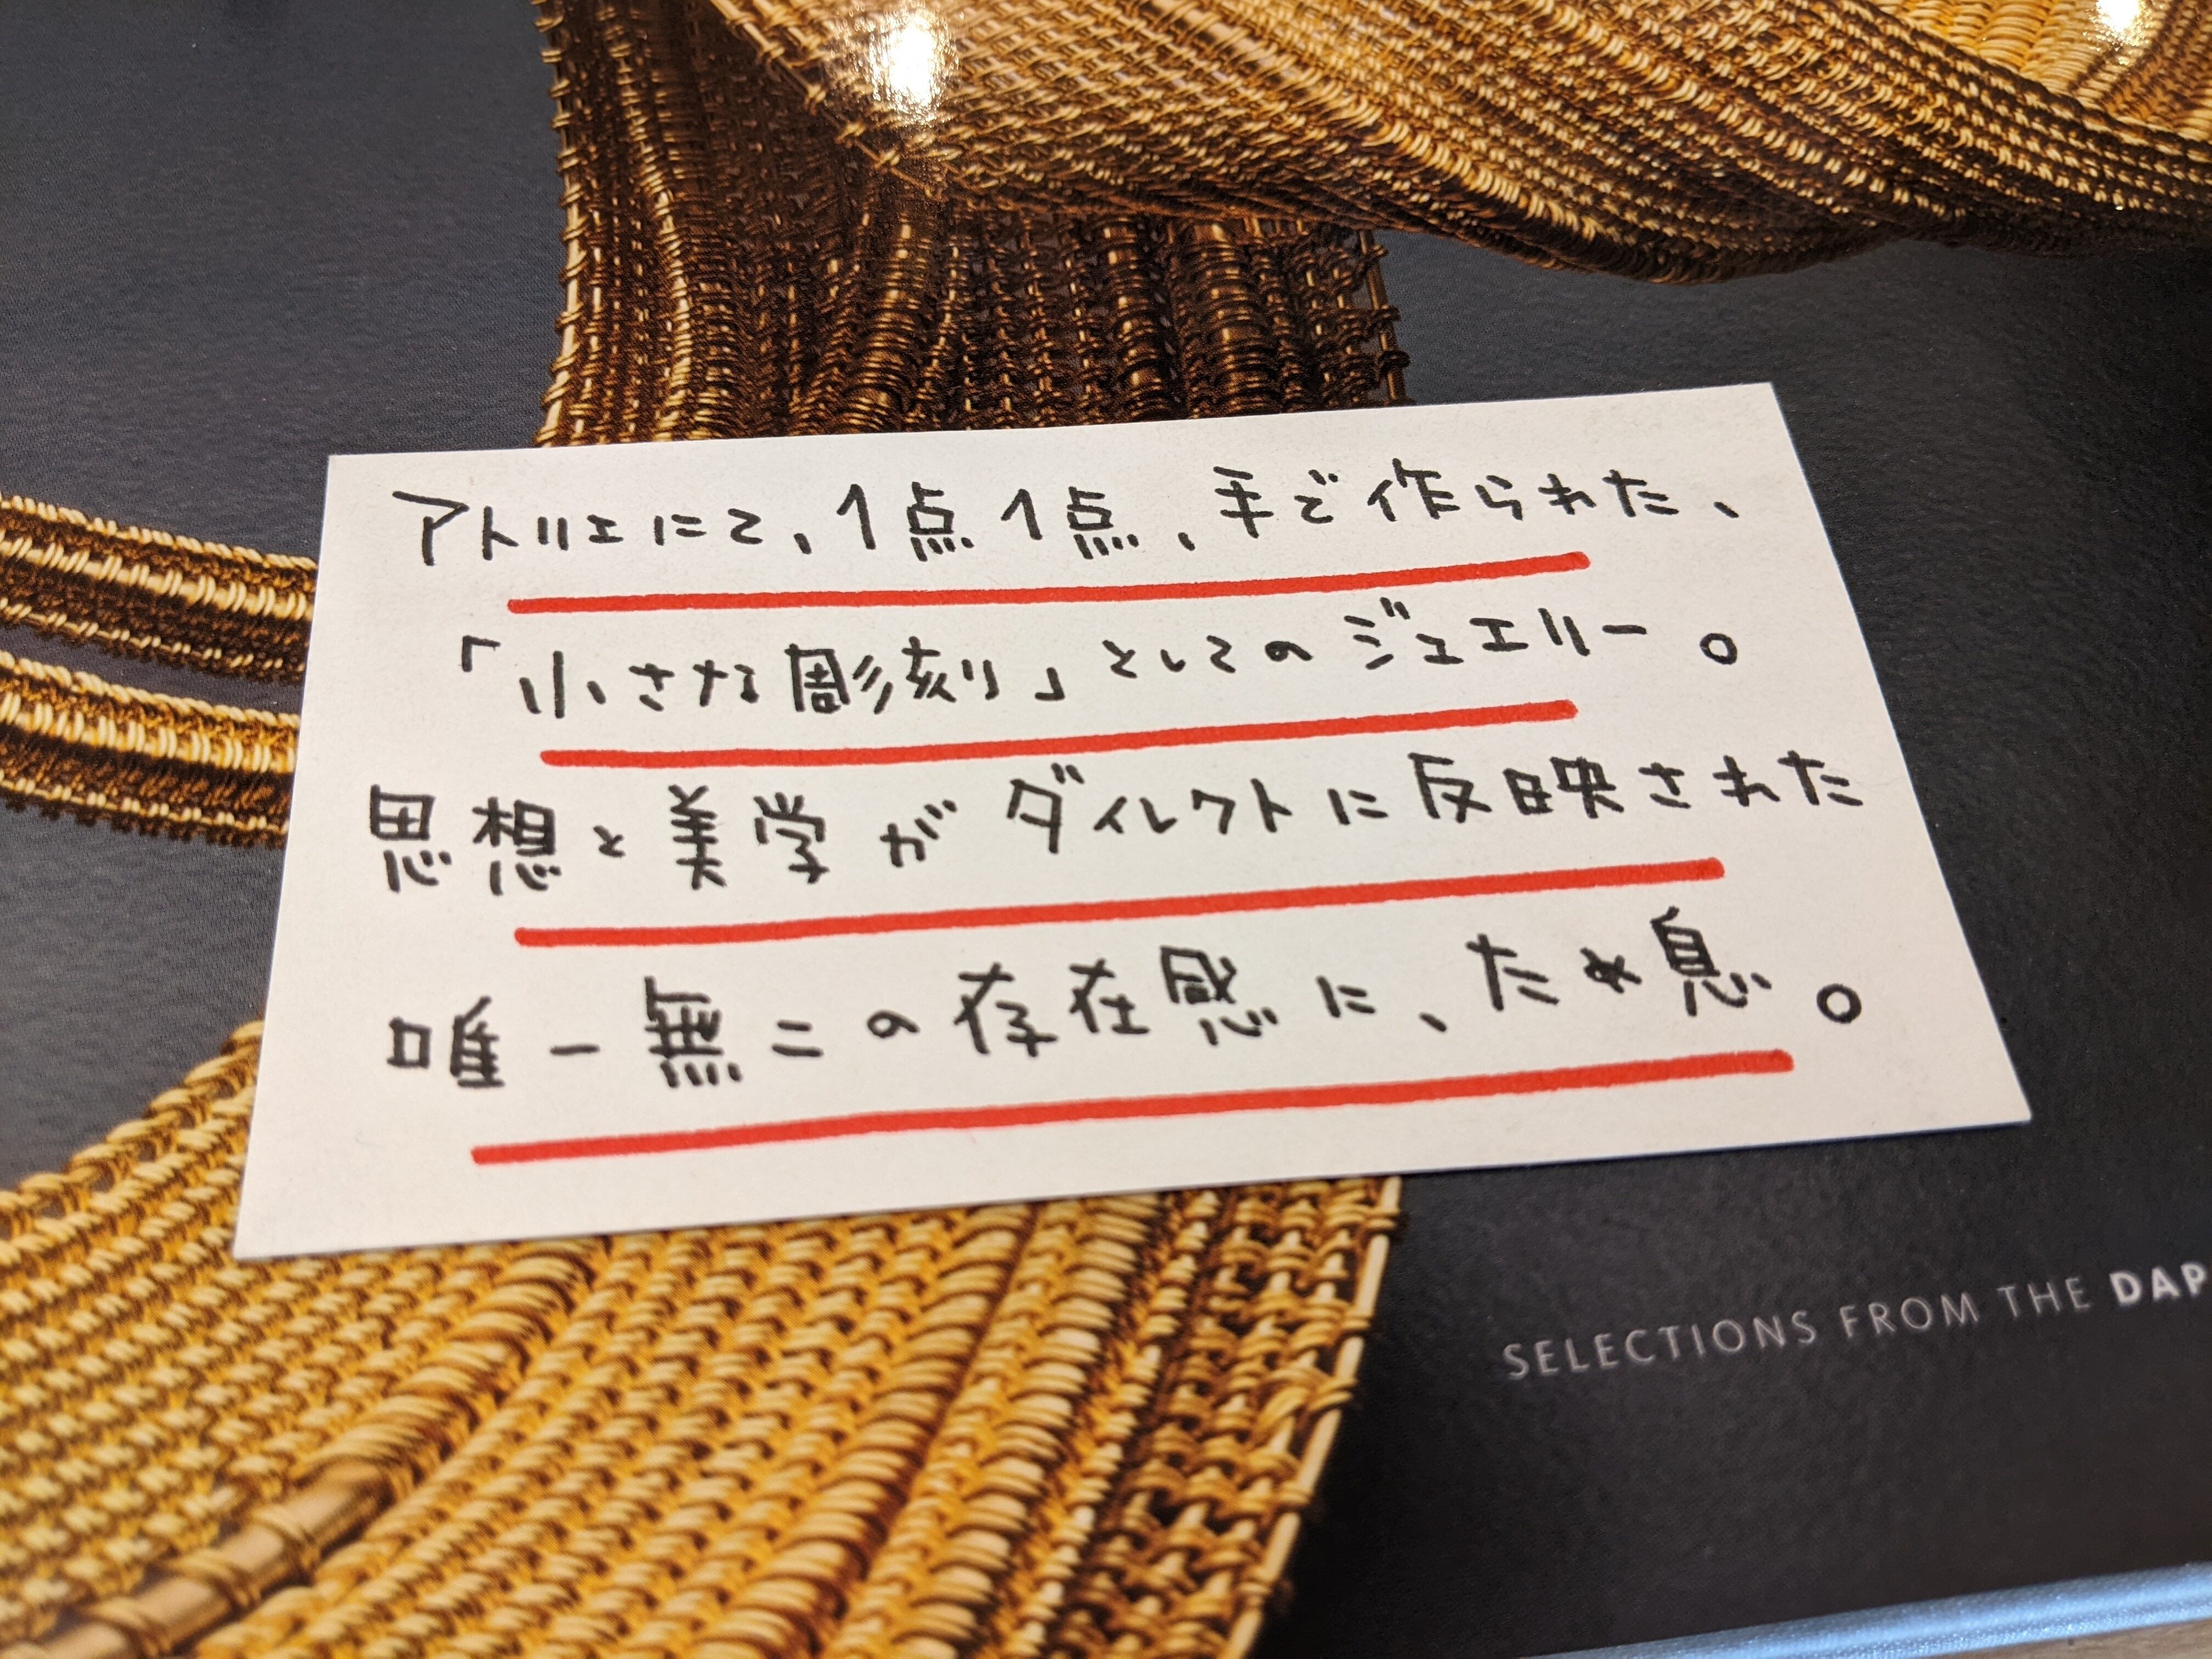 アトリエにて、1点1点、手で作られた、
「小さな彫刻」としてのジュエリー。
思想と美学がダイレクトに反映された
唯一無二の存在感に、ため息。
SELECTIONS FROM THE DAP